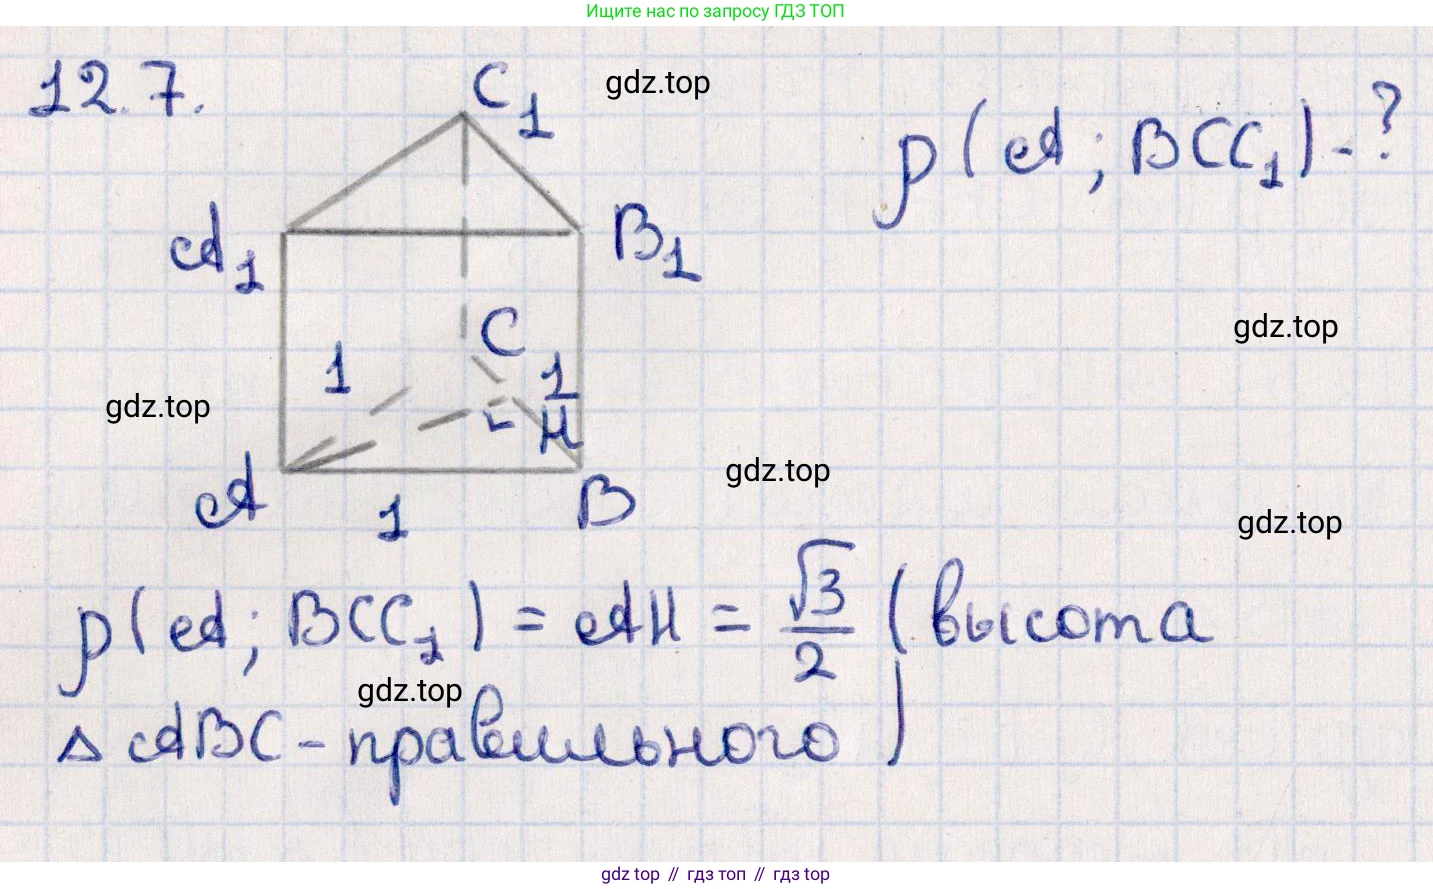 Ищите нас по запросу ГДЗ ТОП
12.7.
C₁
gdz.top
ρ(A; BCC₁) - ?
A₁
B₁
C
gdz.top
1
1
gdz.top
H
gdz.top
A
B
1
gdz.top
ρ(A; BCC₁) = AH = √3/2 (высота
gdz.top
△ ABC - правильного)
gdz top // гдз топ // гдз top